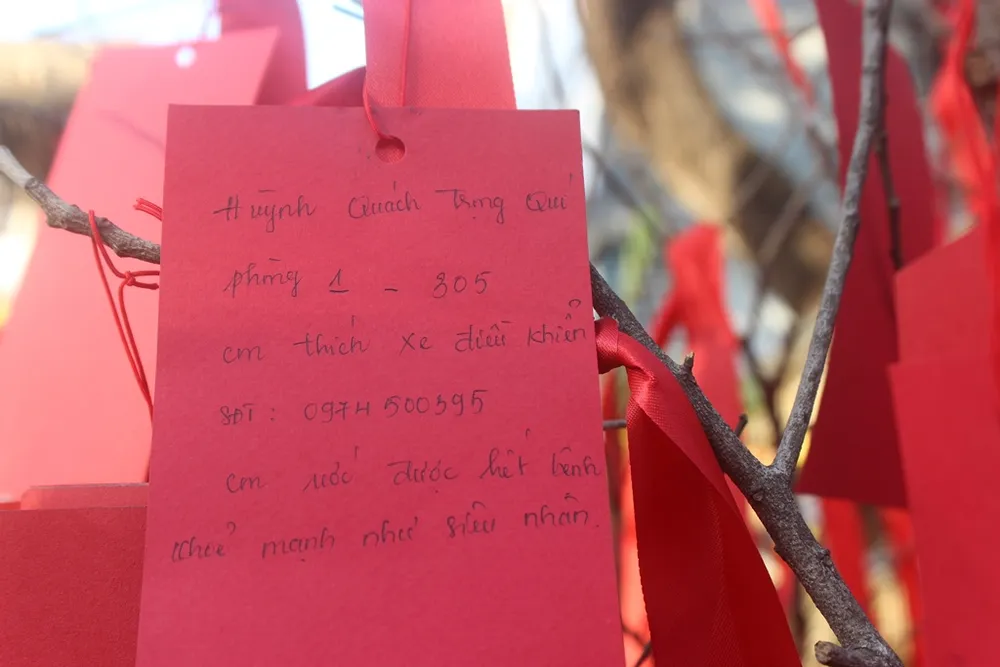 Huỳnh Quách Trọng Quí
phòng 1 - 305
em thích xe điều khiển
SĐT: 0974500595
em ước được hết bệnh
khoẻ mạnh như siêu nhân.